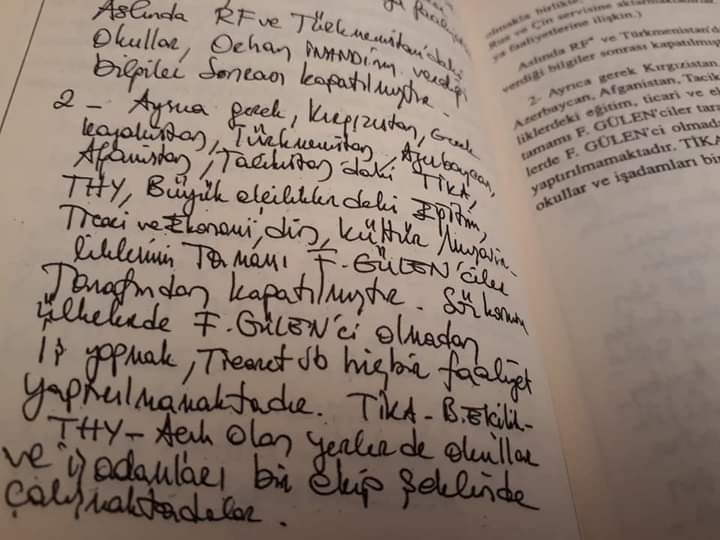 Aslında RF ve Türkmenistan'daki
Okullar, Orhan İNANDI'nın verdiği
bilgiler sonrası kapatılmıştır.
2 - Ayrıca gerek, Kırgızistan, Gerek
Kazakistan, Türkmenistan, Azerbaycan,
Afganistan, Tacikistan'daki TİKA,
THY, Büyük elçiliklerdeki Eğitim,
Ticari ve Ekonomi, din, kültür Müşavir-
liklerinin Tamamı F. GÜLEN'ciler
Tarafından kapatılmıştır. Söz konusu
ülkelerde F. GÜLEN'ci olmadan
İş yapmak, Ticaret vb hiçbir faaliyet
yaptırılmamaktadır. TİKA - B.Elçilik-
THY - Açık olan yerlerde okullar
ve iş adamları bir ekip şeklinde
çalışmaktadırlar.
olmakla birlikte,
Rus ve Çin servisine
ya faaliyetlerine ilişkin.)
Aslında RF" ve Türkmenistan'd
verdiği bilgiler sonrası kapatılmış
2- Ayrıca gerek Kırgızistan
Azerbaycan, Afganistan, Tacik
liklerdeki eğitim, ticari ve ek
tamamı F. GÜLEN'ciler tara
lerde F. GÜLEN'ci olmad
yaptırılmamaktadır. TİKA
okullar ve işadamları bir